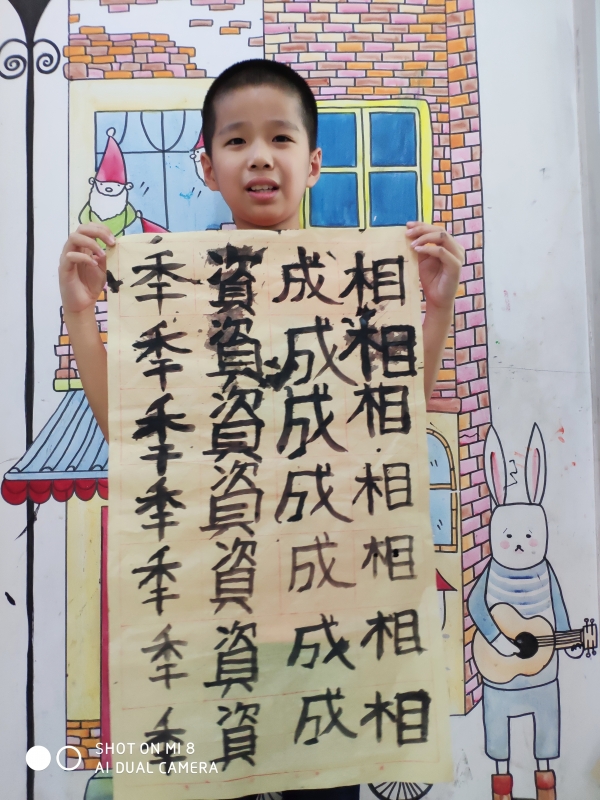 相相相相相相相
成成成成成成成
資資資資資資資
秊秊秊秊秊秊秊
SHOT ON MI 8
AI DUAL CAMERA